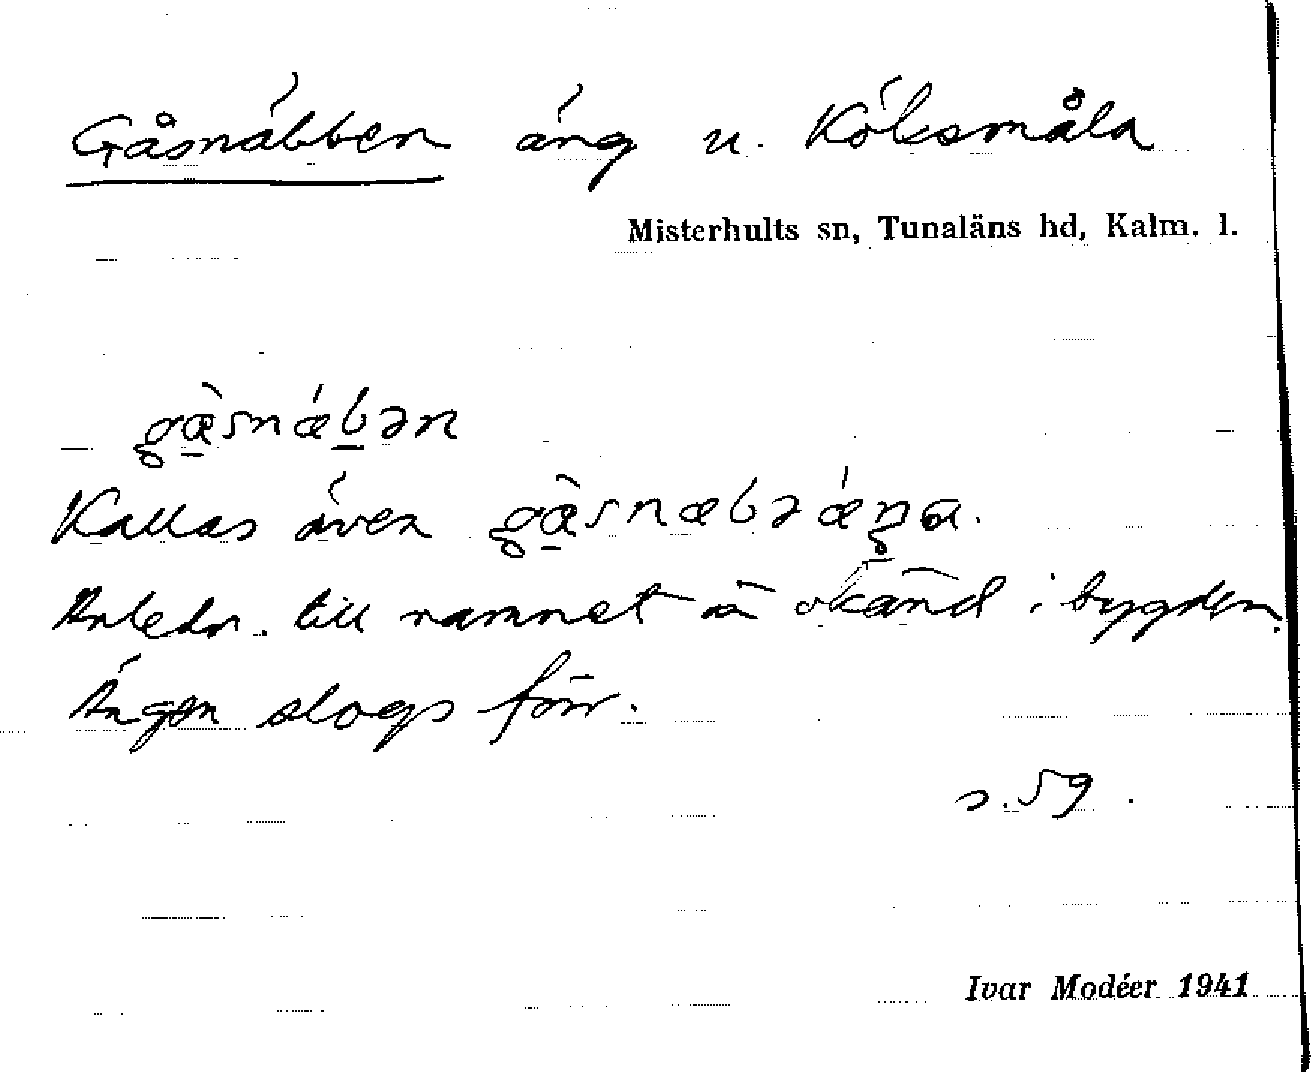 Gåsnäbben äng u. Kölsmåla
Misterhults sn, Tunaläns hd, Kalm. l.
gæ̀snǽbən
Kallas även gæ̀snæbəǽŋa.
Anledn. till namnet är okänd i bygden.
Ängen slogs förr.
s. 59.
Ivar Modéer 1941